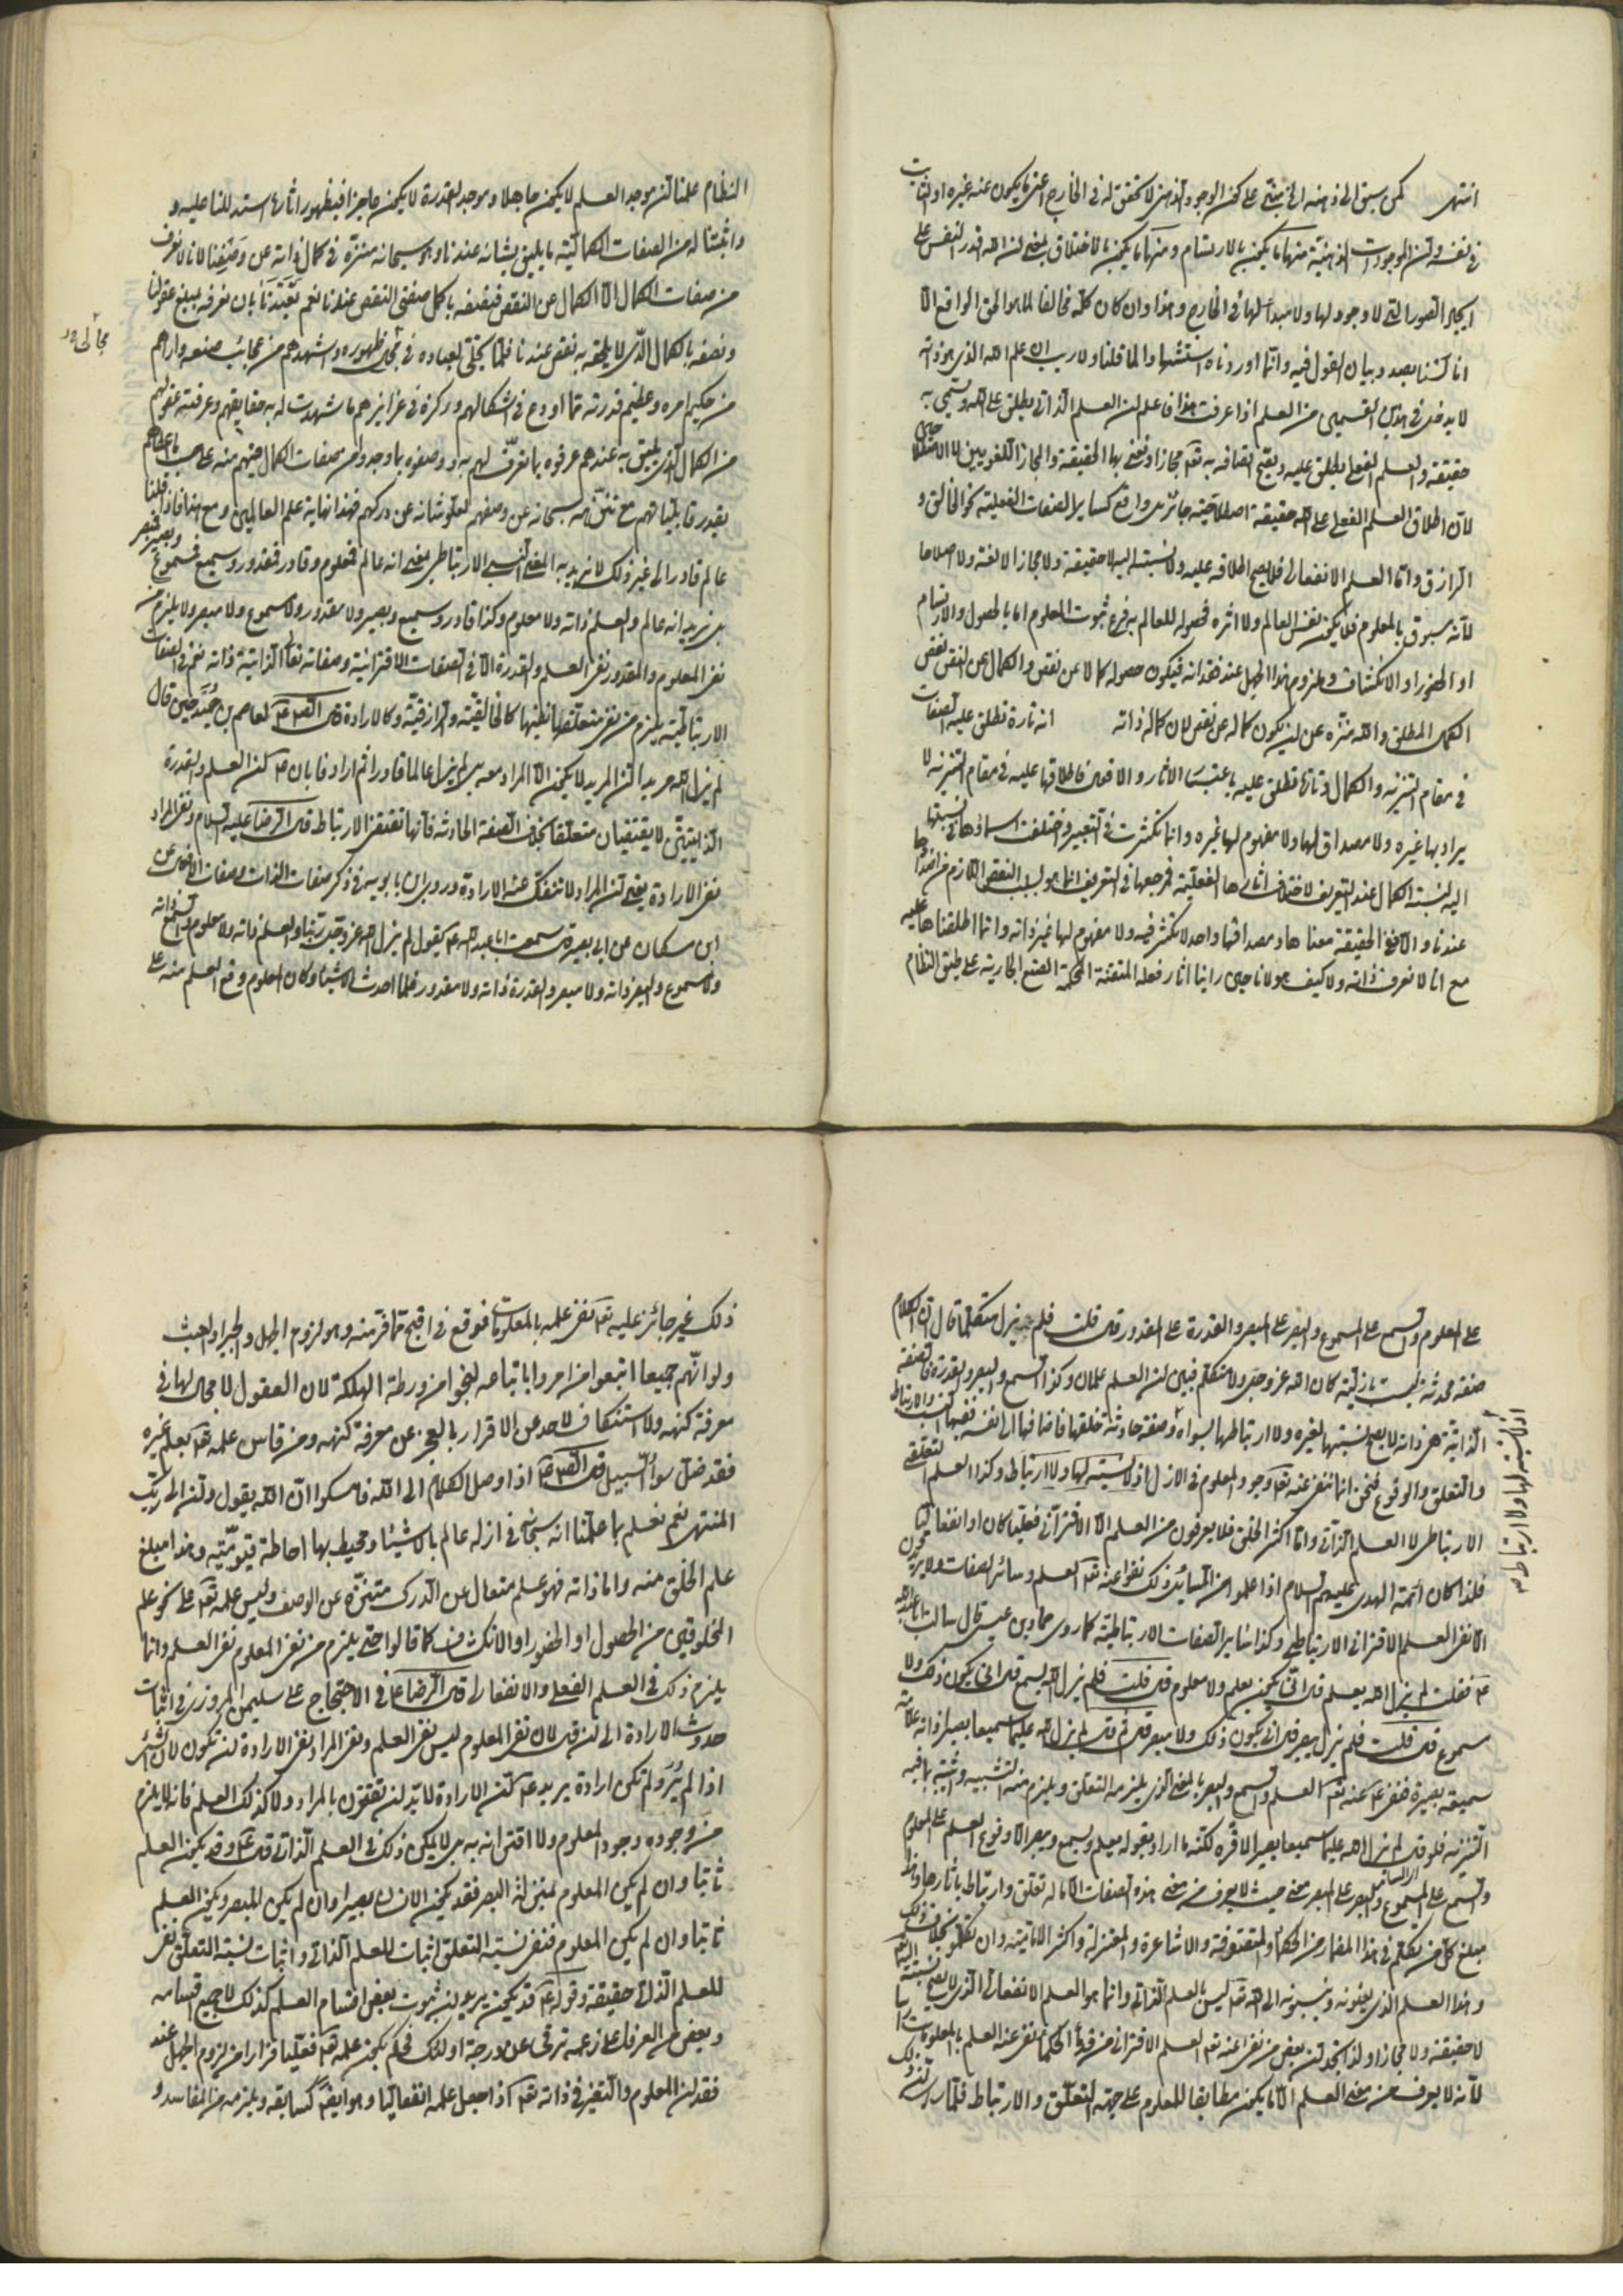 انتهى كمن سبق الى ذهنه الخ مبتنى على كون الوجود الذهنى لا تحقق له فى الخارج اعنى ما يكون عنه غيره اولا ثبات
فى نفسه ولان الموجودات الذهنية منها ما يكون بالارتسام ومنها ما يكون بالاختلاق بمعنى ان الله اقدر النفس على
ايجاد الصور التى لا وجود لها ولا مبدأ لها فى الخارج وهذا وان كان كله مخالفا لما هو الحق الواقع الا
انا لسنا بصدد بيان القول فيه وانما اوردناه استشهادا لما قلنا ولا ريب ان علم الله الذى هو ذاته
لا يدخل فى هذين القسمين من العلم اذا عرفت هذا فاعلم ان العلم الذاتى يطلق على الله ويسمى به
حقيقة والعلم الفعلى يطلق عليه ويصح اتصافه به تعالى مجازا ونعنى بها الحقيقة والمجاز اللغويين لا الاصطلاحيين
لان اطلاق العلم الفعلى على الله حقيقة اصطلاحية جائز بل واقع كساير الصفات الفعلية نحو الخالق و
الرازق واما العلم الانفعالى فلا يصح اطلاقه عليه ولا نسبته اليه لا حقيقة ولا مجازا لا لغة ولا اصطلاحا
لانه مسبوق بالمعلوم فلا يكون نفس العالم ولا اثره فحصوله للعالم به فرع ثبوت المعلوم اما بالحصول والارتسام
او الحضور او الانكشاف ويلزم هذا الجهل عند فقدانه فيكون حصوله كمالا عن نقص والكمال عن النقص نقص
الكمال المطلق والله منزه عن ان يكون كماله عن نقص لان كماله ذاته انه تارة نطلق عليه الصفات
فى مقام التنزيه والكمال وتارة نطلق عليه باعتبار الآثار والافعال فاطلاقها عليه فى مقام التنزيه لا
يراد بها غيره ولا مصداق لها ولا مفهوم لها غيره وانما تكثرت فى التعبير واختلفت اسماؤها فى نسبتها
اليه نسبة الكمال عند التعريف لاختلاف آثارها الفعلية فمرجعها فى التعريف انما هو لسلب النقص اللازم من اضدادها
عندنا والا ففى الحقيقة معناها ومصداقها واحد لا تكثر فيه ولا مفهوم لها غير ذاته وانما اطلقناها عليه
مع انا لا نعرف ذاته ولا كيف هو لانا حين راينا آثار فعله المتقنة المحكمة الصنع الجارية على طبق النظام
النظام علمنا ان موجد العلم لا يكون جاهلا وموجد القدرة لا يكون عاجزا فبظهور آثارها استدللنا عليه و
واثبتنا له من الصفات الكمالية ما يليق بشانه عندنا وهو سبحانه منزه فى كمال ذاته عن وصفنا لانا لا نعرف
من صفات الكمال الا الكمال عن النقص فنصفه باكمل صفتى النقص عندنا نعم تعبدنا بان نعرفه بمبلغ عقولنا
ونصفه بالكمال الذى لا يلحقه به نقص عندنا فلما تجلى لعباده فى مجالى ظهوره واشهدهم من عجائب صنعه واراهم
مجالى
من حكيم امره وعظيم قدرته مما اودع فى اشكالهم وركزه فى غرائزهم ما شهدت له به حقايقهم وعرفته عقولهم
من الكمال الذى يليق به عندهم عرفوه بما تعرف لهم به ووصفوه بما وجدوا من صفات الكمال فيهم منه على حسب ما اعطاهم
بقدر قابلياتهم مع تنزهه سبحانه عن وصفهم لعلو شانه عن دركهم فهذا نهاية علم العالمين ومع هذا فاذا قلنا
عالم قادر الى غير ذلك لا نريد به المعنى النسبى الارتباطى بمعنى انه عالم فمعلوم وقادر فمقدور وسميع فمسموع وبصير فمبصر
بل نريد انه عالم والعلم ذاته ولا معلوم وكذا قادر وسميع وبصير ولا مقدور ولا مسموع ولا مبصر ولا يلزم من
نفى المعلوم والمقدور نفى العلم والقدرة الا فى الصفات الاقترانية وصفاته تعالى الذاتية ذاته نعم فى الصفات
الارتباطية يلزم من نفى متعلقها نفيها كالخالقية والرازقية وكالارادة قال الصادق ع لعاصم بن حميد حين قال
لم يزل الله مريدا ان المريد لا يكون الا لمراد معه بل لم يزل عالما قادرا ثم اراد فابان ع كون العلم والقدرة
الذاتيتين لا يقتضيان متعلقا بخلاف الصفة الحادثة فانها تقتضى الارتباط قال الرضا عليه السلام ونفى المراد
نفى الارادة يعنى ان المراد لا تنفك عنه الارادة وروى ابن بابويه فى ذكر صفات الذات وصفات الافعال عن
ابن مسكان عن ابى بصير قال سمعت ابا عبد الله ع يقول لم يزل الله عز وجل ربنا والعلم ذاته ولا معلوم والسمع ذاته
ولا مسموع والبصر ذاته ولا مبصر والقدرة ذاته ولا مقدور فلما احدث الاشياء وكان المعلوم وقع العلم منه على
على المعلوم والسمع على المسموع والبصر على المبصر والقدرة على المقدور قال قلت فلم يزل متكلما قال ان الكلام
صفة محدثة ليست بازلية كان الله عز وجل ولا متكلم فبين ان العلم علمان وكذا السمع والبصر والقدرة فالصفة
الذاتية هى ذاته لا يصح نسبتها لغيره ولا ارتباطها بسواه وصفة حادثة خلقها فاضافها الى نفسه نفيها النسب والارتباط
والتعلق والوقوع فنحن انما ننفى عنه تعالى وجود المعلوم فى الازل اذ لا نسبة لها ولا ارتباط وكذا العلم التعلقى
اذ لا نسبة لها ولا ارتباط
الارتباطى لا العلم الذاتى واما اكثر الخلق فلا يعرفون من العلم الا الاقترانى فعليا كان او انفعاليا
فلذا كان ائمة الهدى عليهم السلام اذا علموا من السائل ذلك نفوا عنه تعالى العلم وسائر الصفات ولا يريدون
الا نفى العلم الاقترانى الارتباطى وكذا ساير الصفات الارتباطية كما روى حماد بن عيسى قال سالت ابا عبد الله
ع فقلت لم يزل الله يعلم قال انى يكون يعلم ولا معلوم قال قلت فلم يزل الله يسمع قال انى يكون ذلك ولا
مسموع قال قلت فلم يزل يبصر قال انى يكون ذلك ولا مبصر قال ثم قال لم يزل الله عليما سميعا بصيرا ذات علامة
سميعة بصيرة فنفى ع عنه تعالى العلم والسمع والبصر بالمعنى الذى يلزمه التعلق ويلزم منه التشبيه واثبته بما فيه
التنزيه فلو قال لم يزل الله عليما سميعا بصيرا لاقره لكنه ما اراد بقوله يعلم ويسمع ويبصر الا وقوع العلم على المعلوم
والسمع على المسموع والبصر على المبصر حيث لا يعرف من معنى هذه الصفات الا ما له تعلق وارتباط بآثارها وذلك
مبلغ كل من تكلم فى هذا المضمار من الحكماء والمتصوفة والاشاعرة والمعتزلة واكثر الامامية وان تكلموا بخلاف ذلك
وهذا العلم الذى يعنونه وينسبونه الى الله تعالى ليس بالعلم الذاتى وانما هو العلم الانفعالى الذى لا يصح نسبته اليه
لا حقيقة ولا مجازا ولذا تجد ان بعض من نفى عنه تعالى العلم الاقترانى من قدماء الحكماء نفى عنه العلم بالمعلومات
لانه لا يعرف من معنى العلم الا ما يكون مطابقا للمعلوم على جهة التعلق والارتباط فلما راى ان
ذلك غير جائز عليه تعالى نفى علمه بالمعلومات فوقع فى اقبح مما فر منه وهو لزوم الجهل والجبر والعبث
ولو انهم جميعا اتبعوا من امروا باتباعه لنجوا من ورطة الهلكة لان العقول لا مجال لها فى
معرفة كنهه ولا استنكاف لاحد عن الاقرار بالعجز عن معرفة كنهه ومن قاس علمه تعالى بعلم غيره
فقد ضل سواء السبيل قال الصادق ع اذا وصل الكلام الى الله فامسكوا ان الله يقول وان الى ربك
المنتهى نعم نعلم بما علمنا انه سبحانه فى ازله عالم بالاشياء ومحيط بها احاطة قيومية وهذا مبلغ
علم الخلق منه واما ذاته فهو علم متعال عن الدرك متنزه عن الوصف وليس علمه تعالى على نحو علم
المخلوقين من الحصول او الحضور او الانكشاف كما قالوا حتى يلزم من نفى المعلوم نفى العلم وانما
يلزم ذلك فى العلم الفعلى والانفعالى قال الرضا ع فى الاحتجاج على سليمن المروزى فى اثبات
حدوث الارادة الى ان قال لان نفى المعلوم ليس نفى العلم ونفى المراد نفى الارادة ان تكون لان الشئ
اذا لم يرد لم تكن ارادة يريد ع كون الارادة لا بد ان تقترن بالمراد ولا كذلك العلم فانه لا يلزم
من وجوده وجود المعلوم ولا اقترانه به بل لا يمكن ذلك فى العلم الذاتى قال ع وقد يكون العلم
ثابتا وان لم يكن المعلوم بمنزلة البصر فقد يكون الانسان بصيرا وان لم يكن المبصر ويكون العلم
ثابتا وان لم يكن المعلوم فنفى نسبة التعلق اثبات للعلم الذاتى واثبات نسبة التعلق نفى
للعلم الذاتى حقيقة وقوله ع قد يكون يريد ان ثبوت بعض اقسام العلم كذلك لا جميع اقسامه
وبعض من العرفاء على زعمه ترقى عن درجة اولئك فحكم بكون علمه تعالى فعليا فرارا من لزوم الجهل عند
فقدان المعلوم والتغير فى ذاته تعالى اذا جعل علمه انفعاليا وهو ايضا كسابقه ويلزمه من المفاسد و